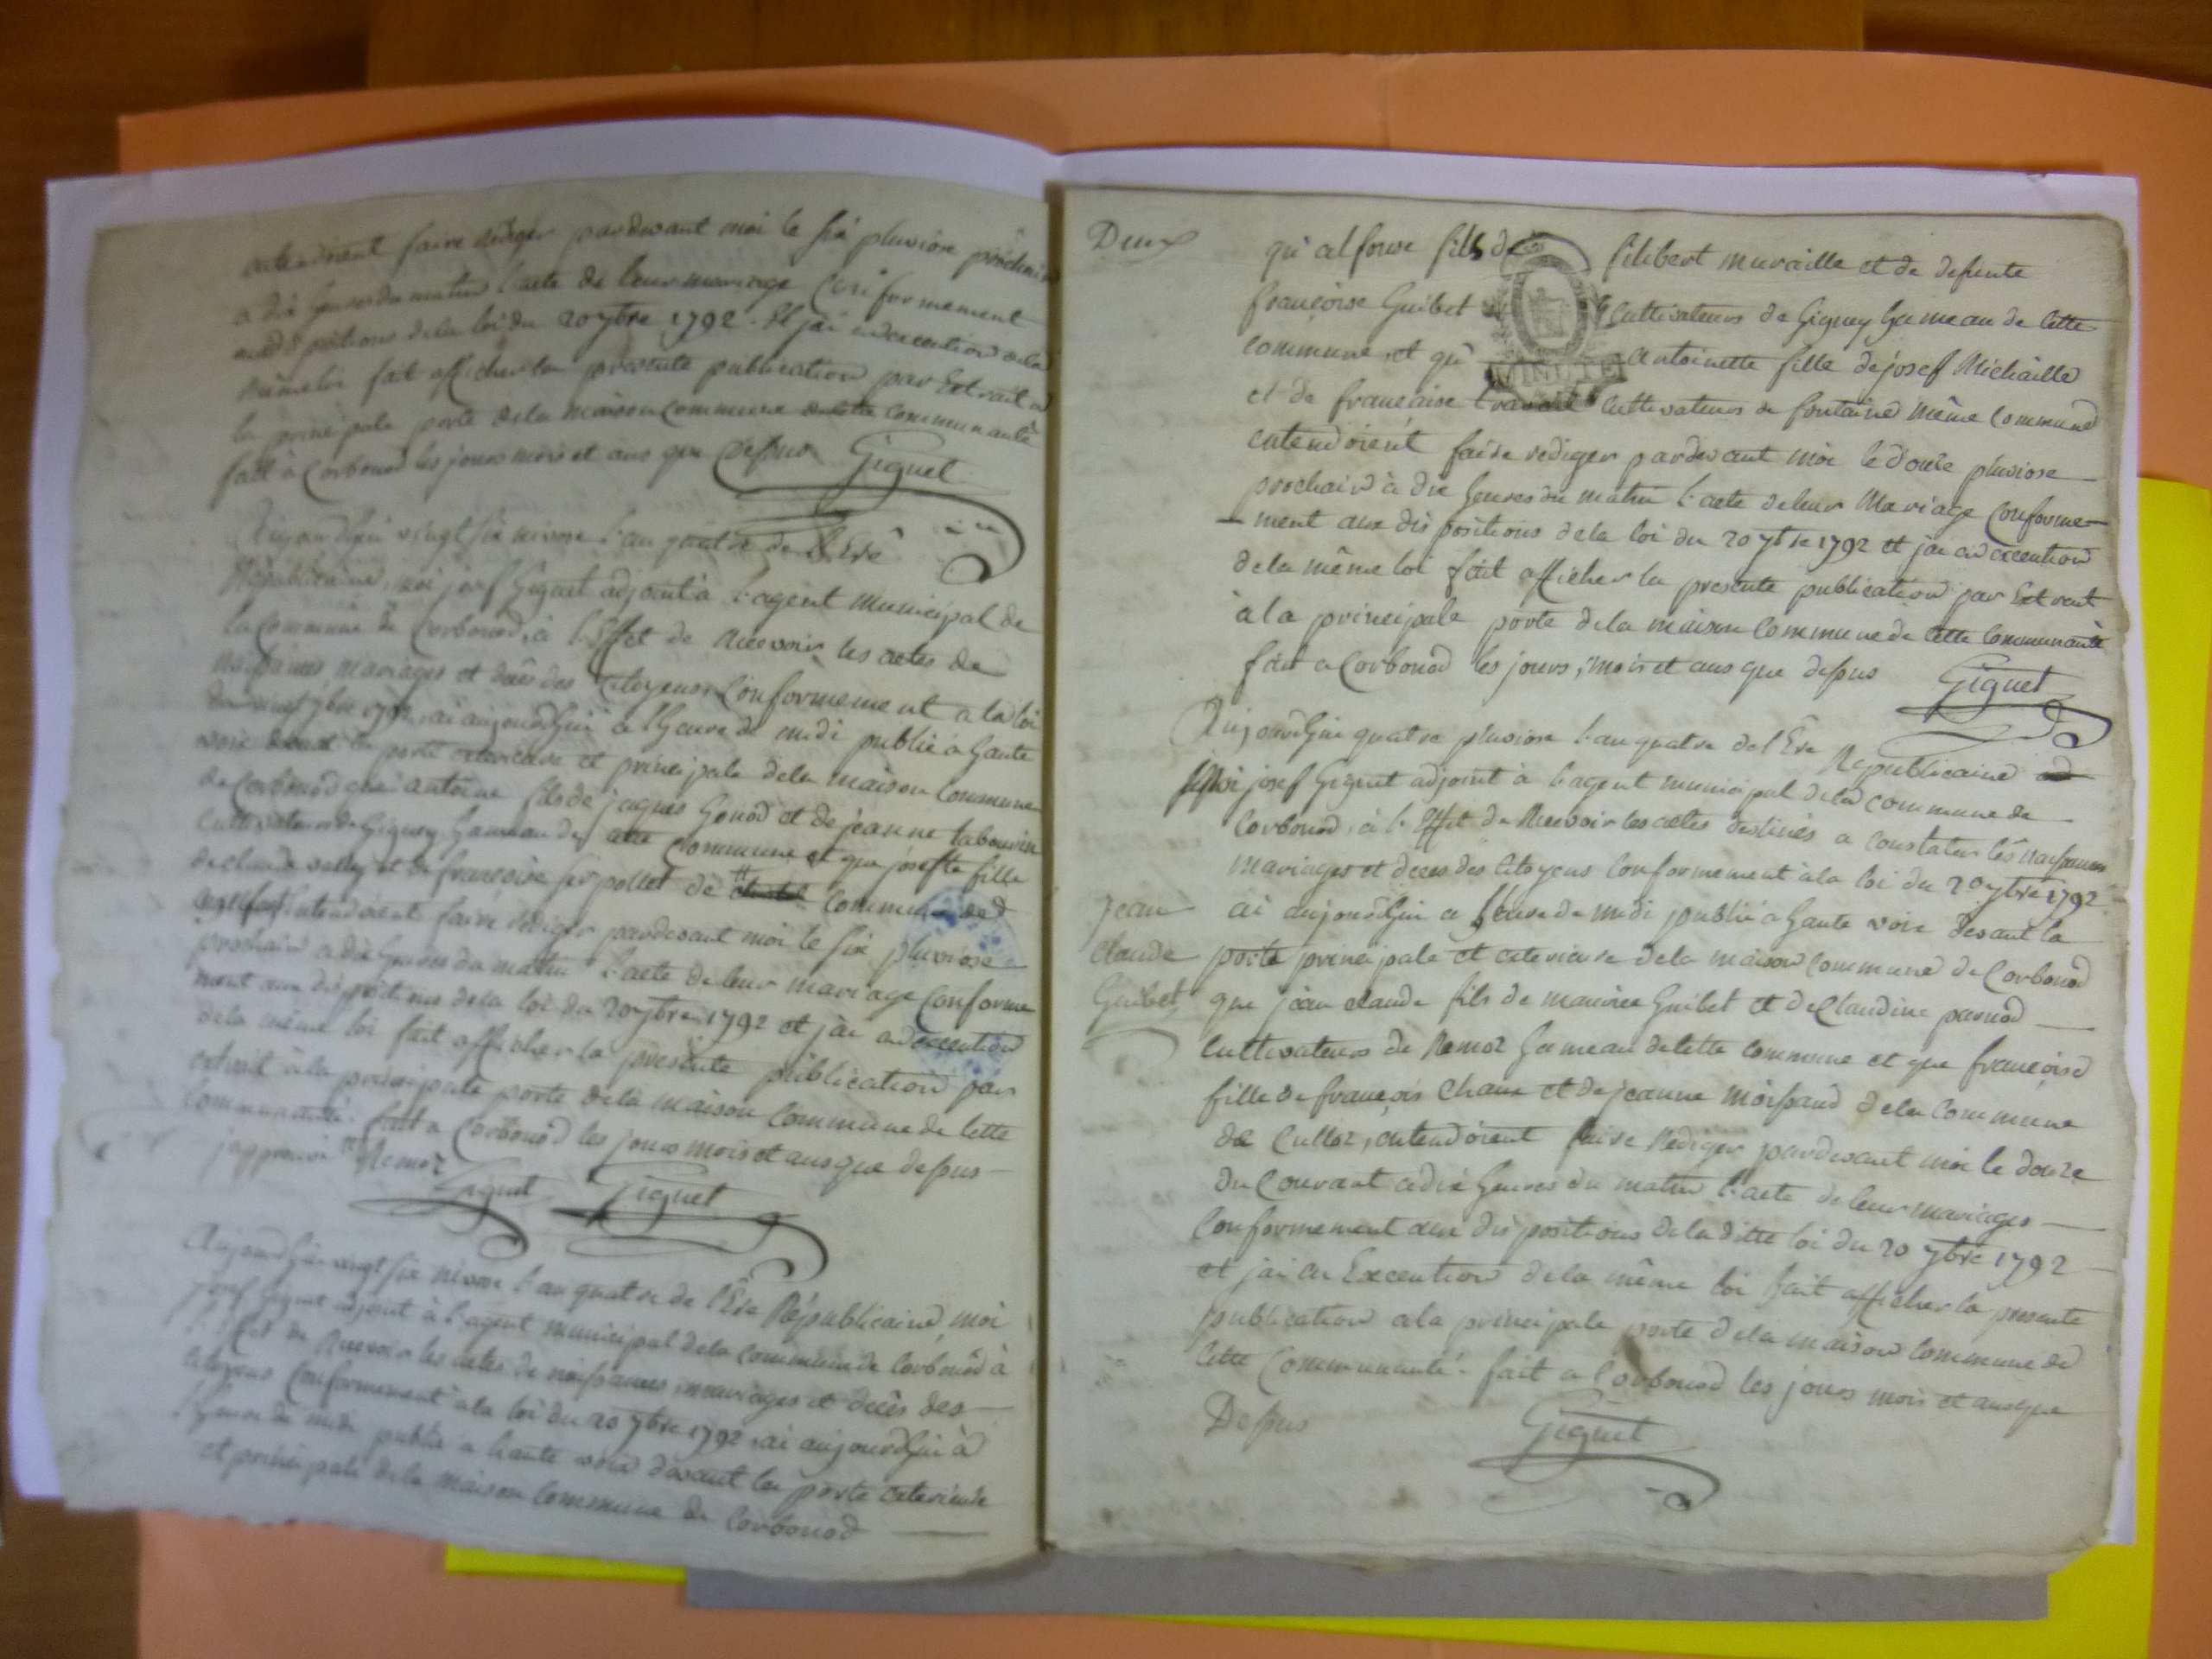 entendoient faire rediger pardevant moi le six pluviose prochain
a dix heures du matin l'acte de leur mariage Conformement
aux dispositions de la loi du 20 7bre 1792. Et j'ai en execution de la
même loi fait afficher la presente publication par Extrait a
la principale porte de la maison commune de cette communauté
fait à Corbonod les jours mois et ans que dessus Giguet
Aujourdhui vingt six nivose l'an quatre de l'Ere
Républicaine, moi josef Giguet adjoint à l'agent municipal de
la Commune de Corbonod, à l'Effet de Recevoir les actes de
naissances mariages et décés des Citoyens Conformement a la loi
du vingt 7bre 1792, ai aujourdhui à l'heure de midi publié a haute
voix devant la porte exterieure et principale de la maison Commune
de Corbonod que antoine fils de jaques Gonod et de jeanne tabourin
Cultivateurs de Gignez hameau de cette Commune et que josefte fille
de claude et de françoise pollet de commune de
entendoient faire rediger pardevant moi le six pluviose
prochain a dix heures du matin l'acte de leur mariage Conforme
ment aux dispositions de la loi du 20 7bre 1792 et j'ai en execution
de la même loi fait afficher la presente publication par
extrait à la principale porte de la maison Commune de Cette
Communauté. fait a Corbonod les jours mois et ans que dessus
japprouve Remoz
Giguet Giguet
Aujourdhui vingt six nivose l'an quatre de l'Ere Républicaine, moi
josef Giguet adjoint à l'agent municipal de la Commune de Corbonod à
l'Effet de Recevoir les actes de naissances, mariages et décès des
Citoyens Conformement à la loi du 20 7bre 1792, ai aujourdhui à
l'heure de midi publié a haute voix devant la porte exterieure
et principale de la maison Commune de Corbonod
Deux
qu'alfonse fils de filibert muraille et de defunte
françoise Guibet Cultivateurs de Gignez hameau de Cette
Commune, et qu' antoinette fille de josef Michaille
MINUTE
et de françoise Cultivateurs de fontaine même Commune
entendoient faire rediger pardevant moi le douze pluviose
prochain à dix heures du matin l'acte de leur Mariage Conforme
ment aux dispositions de la loi du 20 7bre 1792 et j'ai en execution
de la même loi fait afficher la presente publication par Extrait
à la principale porte de la maison Commune de Cette Communauté
fait a Corbonod les jours, mois et ans que dessus Giguet
Aujourdhui quatre pluviose l'an quatre de l'Ere Republicaine
Moi josef Giguet adjoint à l'agent municipal de la commune de
Corbonod, à l'Effet de Recevoir les actes destinés a constater les naissances
mariages et deces des Citoyens Conformement à la loi du 20 7bre 1792
Jean
claude
Guibet
ai aujourdhui a l'heure de midi publié a haute voix devant la
porte principale et exterieure de la maison commune de Corbonod
que jean claude fils de maurice Guibet et de Claudine parnod
Cultivateurs de Remoz hameau de Cette Commune et que françoise
fille de françois Chane et de jeanne moissand de la Commune
de Culloz, entendoient faire Rediger pardevant moi le douze
du Courant a dix heures du matin l'acte de leur mariages
Conformement aux dispositions de la ditte loi du 20 7bre 1792
et j'ai en Execution de la même loi fait afficher la presente
publication a la principale porte de la maison Commune de
Cette Communauté. fait a Corbonod les jours mois et ans que
Dessus
Giguet